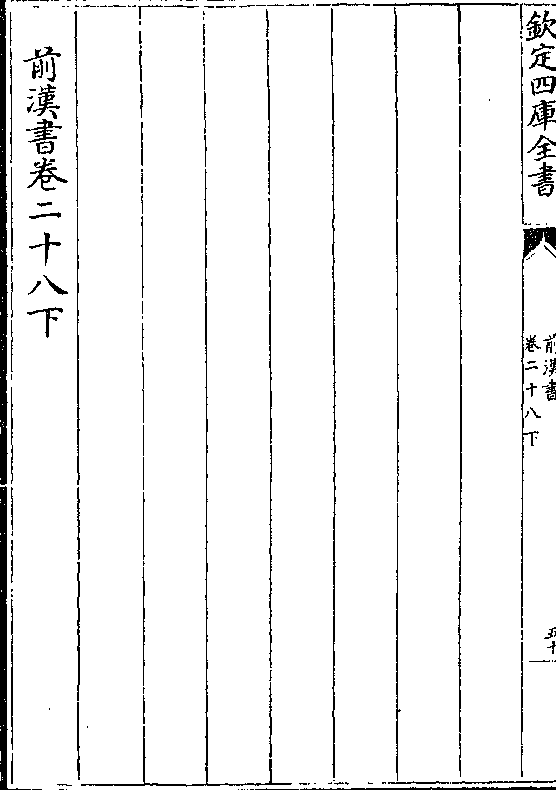 欽定四庫全書
前漢書
卷二十八下
五十
前漢書卷二十八下